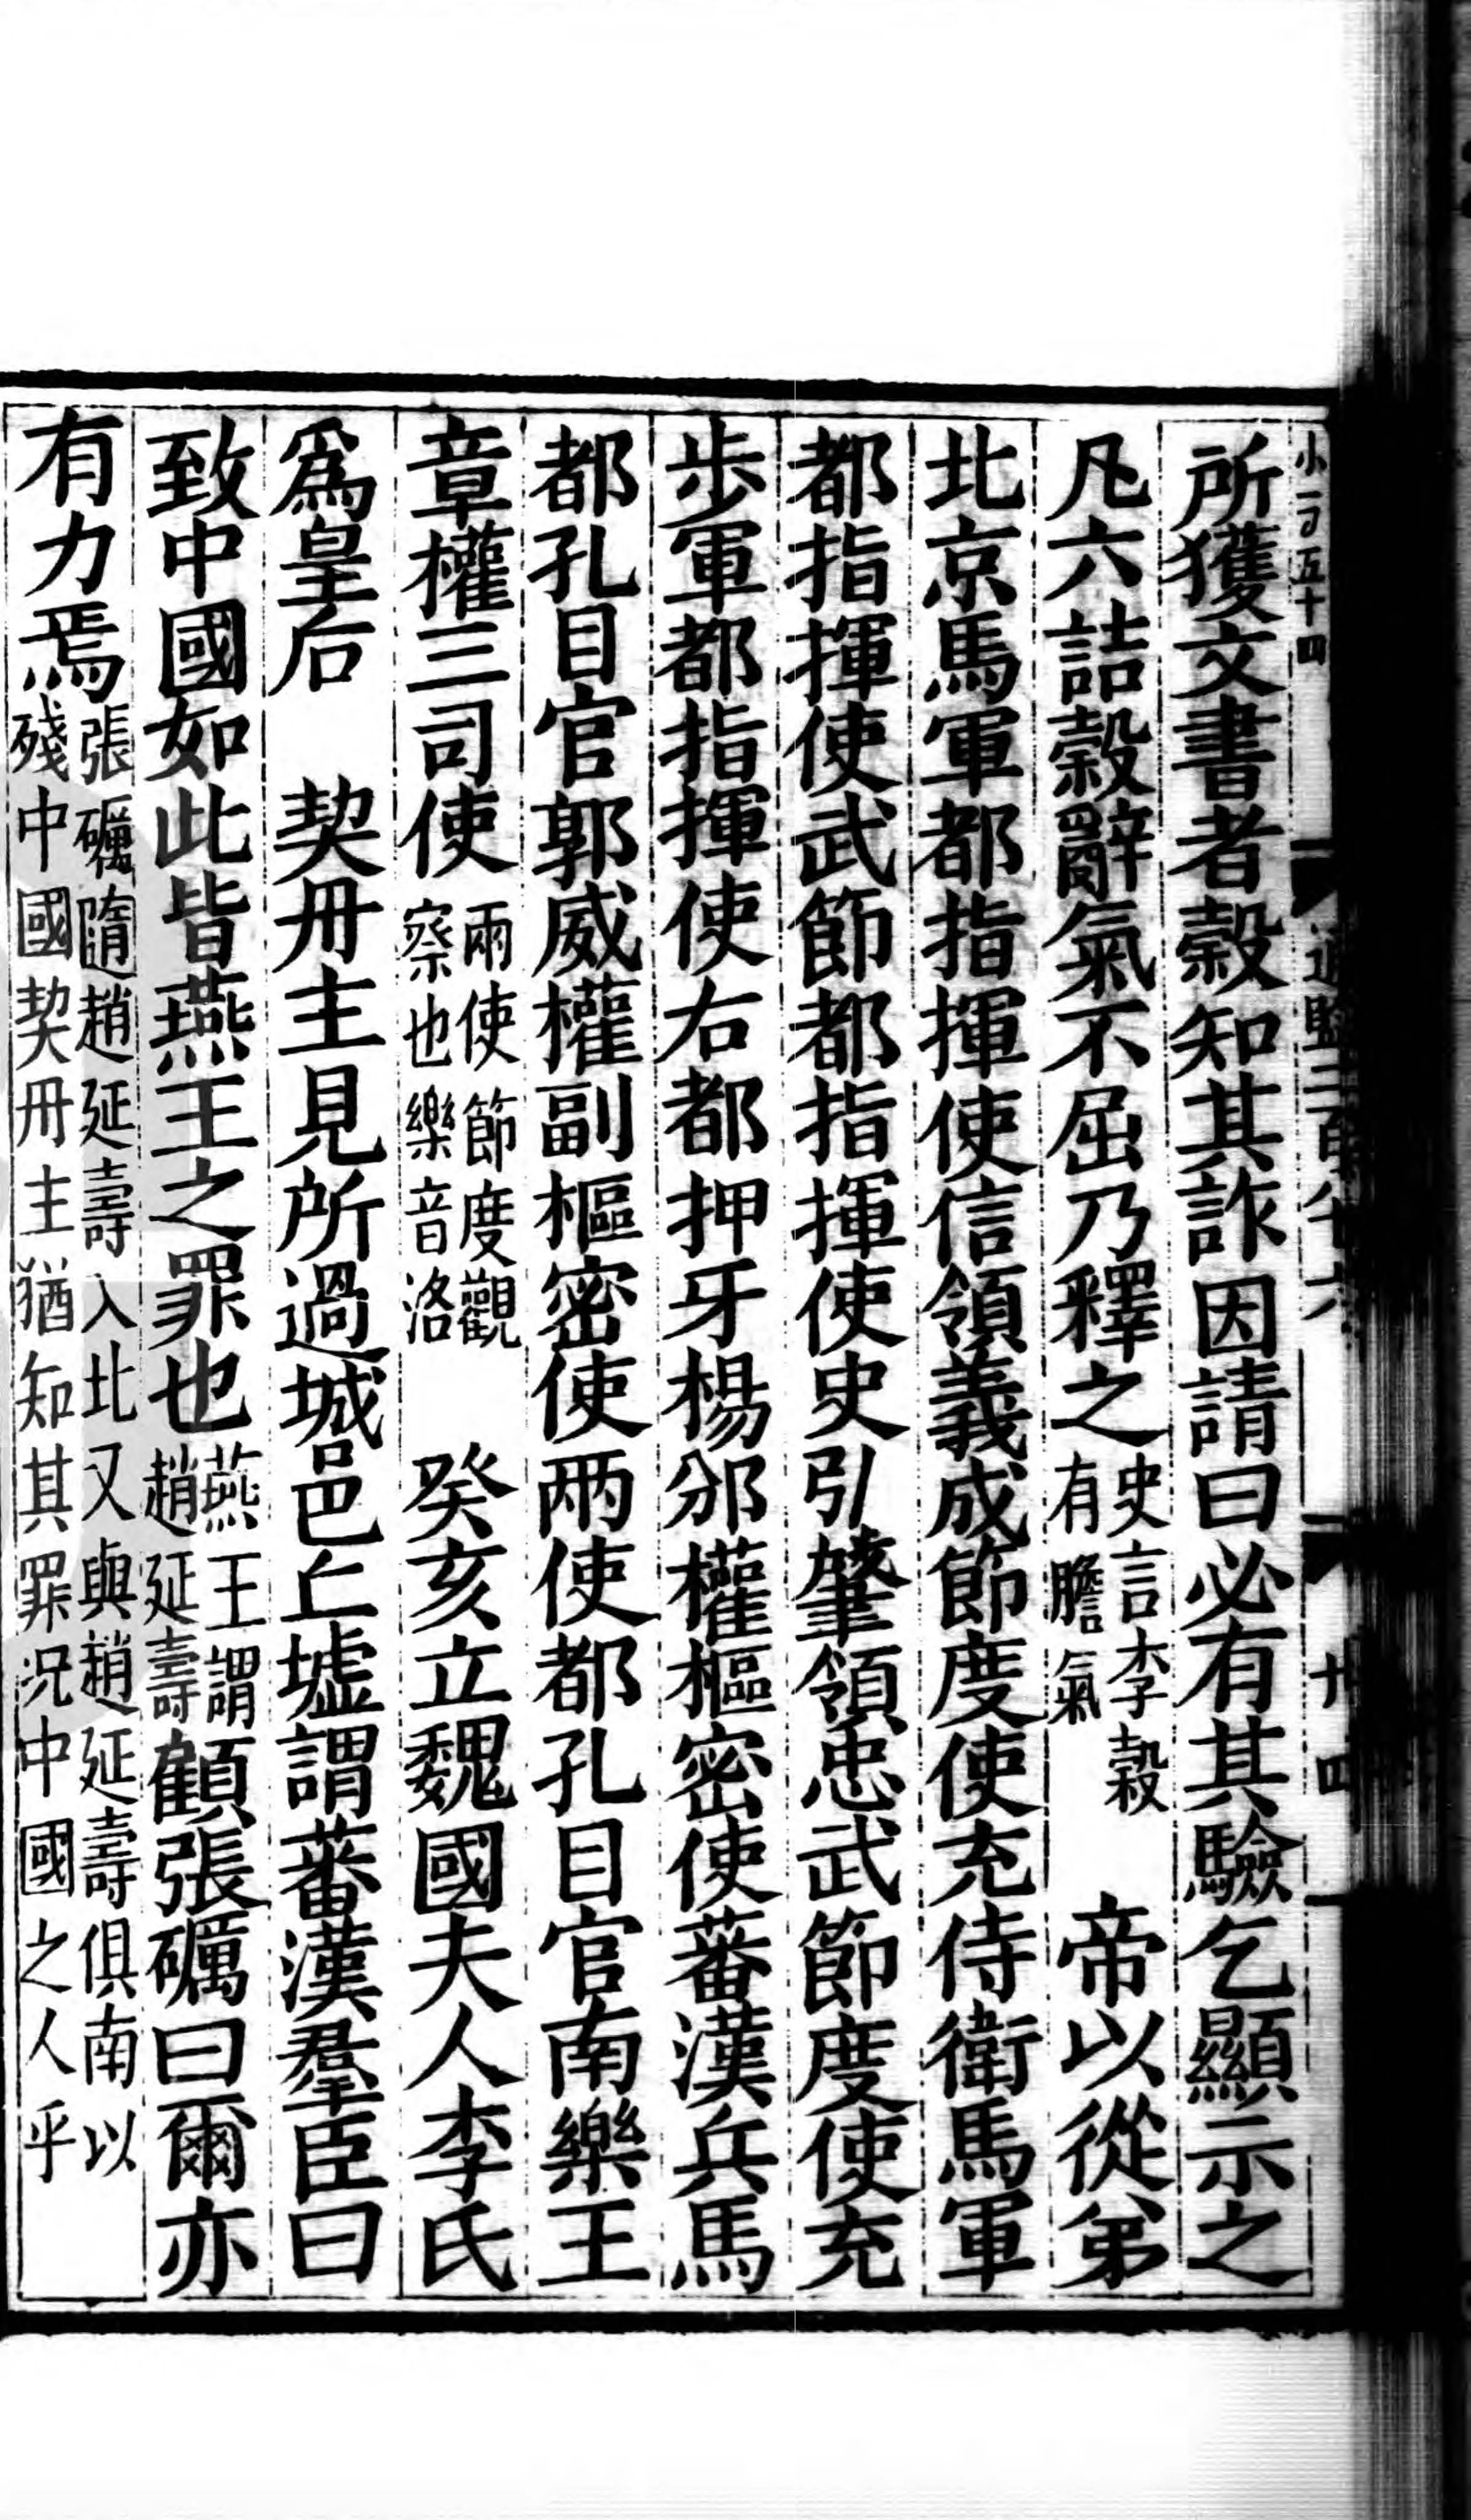 小一百五十四
通鑑二百八十六
廿四
所獲文書者穀知其詐因請曰必有其驗乞顯示之
凡六詰穀辭氣不屈乃釋之史言李穀有膽氣　帝以從弟
北京馬軍都指揮使信領義成節度使充侍衛馬軍
都指揮使武節都指揮使史引肇領忠武節度使充
步軍都指揮使右都押牙楊邠權樞密使蕃漢兵馬
都孔目官郭威權副樞密使兩使都孔目官南樂王
章權三司使兩使節度觀察也樂音洛　癸亥立魏國夫人李氏
爲皇后　契丹主見所過城邑丘墟謂蕃漢羣臣曰
致中國如此皆燕王之罪也燕王謂趙延壽顧張礪曰爾亦
有力焉張礪隨趙延壽入北又與趙延壽俱南以殘中國契丹主猶知其罪况中國之人乎